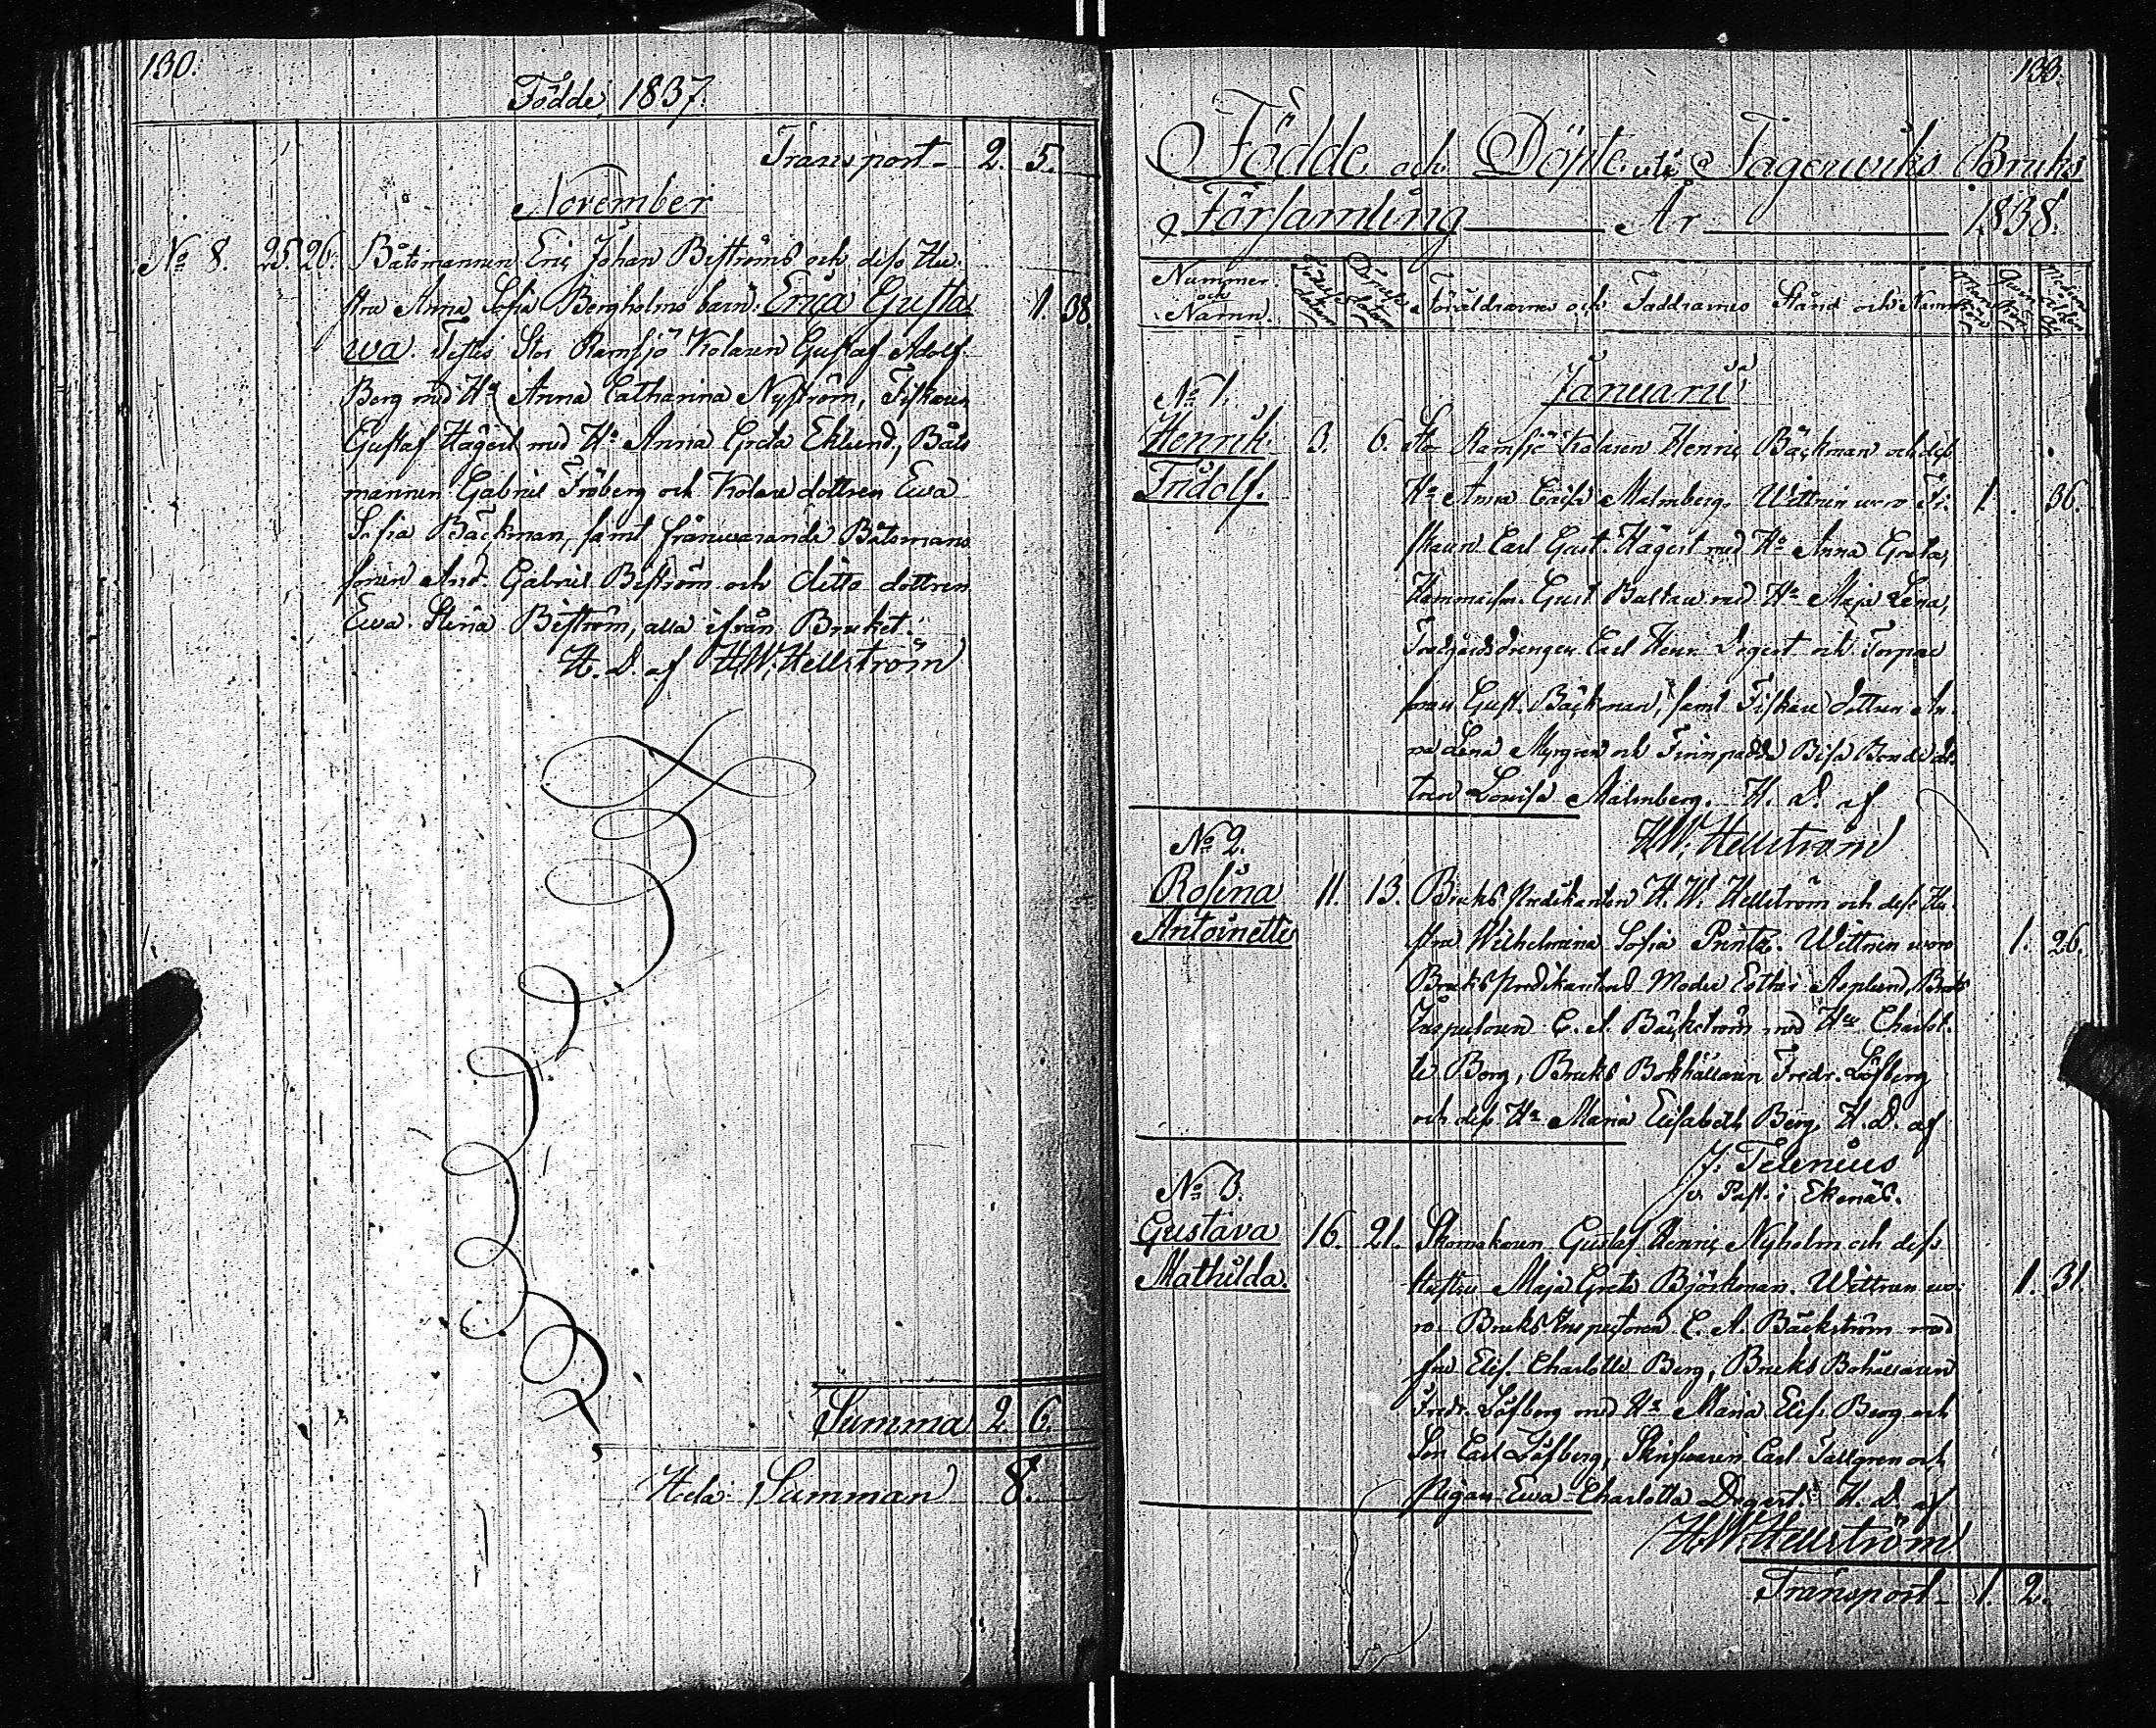 130.
Födde 1837.
Transport - 2. 5.
November
No 8. 25. 26. Båtsmannen Eric Johan Biströms och dess Hu-
stru Anna Sofia Bergholms barn: Erica Gusta- 1. 38.
va. Testes Stor Ramsjö Kolaren Gustaf Adolf
Berg med Hu Anna Catharina Nyström, Fiskaren
Gustaf Hägert med Hu Anna Greta Eklund, Båts
mannen Gabriel Fröberg och Kolare dottren Ewa
Sofia Bäckman, samt frånwarande Båtsmans
sonen And. Gabriel Biström och ditto dottren
Ewa Stina Biström, alla ifrån Bruket.
H. D. af H. W. Hellström
Summa 2 6.
Hela Summan 8.
133.
Födde och Döpte uti Fagerwiks Bruks
Församling År 1838.
Nummer och Namn. Födelse datum Döpelse datum Föräldrarnes och Faddrarnes Stånd och Namn
Januarii
No 1.
Henrik 3. 6. Stor Ramsjö Kolaren Henric Bäckman och dess
Fridolf. Hu Anna Lovisa Malmberg. Wittnen woro Fi- 1. 36.
skaren Carl Gust. Hägert med Hu Anna Greta,
Hammarsm. Gust. med Hu Maja Lena,
Trädgårdsdrengen Carl Henr. Degert och Torpare
sonen Gust. Bäckman, samt Fiskare dottren An-
na Lena Myrgren och Finnpada Bisa Bonde dot-
tren Lovisa Malmberg. H. D. af
H. W. Hellström
No 2.
Rosina 11. 13. Bruks Predikanten H. W. Hellström och dess Hu-
Antoinette stru Wilhelmina Sofia Printz. Wittnen woro 1. 26.
Bruks Predikantens Moder Esther Asplund, Bruks
Inspectoren C. A. Bäckström med Hu Charlot-
te Berg, Bruks Bokhållaren Fredr. Löfberg
och dess Hu Maria Elisabeth Berg. H. D. af
J. Telenius
v. Past. i Ekenäs.
No 3.
Gustava 16. 21. Skomakaren Gustaf Henric Nyholm och dess
Mathilda. Hustru Maja Greta Björkman. Wittnen wo- 1. 31.
ro Bruks Inspectoren C. A. Bäckström med
fru Elis. Charlotte Berg, Bruks Bohållaren
Fredr. Löfberg med Hu Maria Elis. Berg och
Son Carl Löfberg, Skrifvaren Carl Tallgren och
Pigan Ewa Charlotta Degert. H. D. af
H. W. Hellström
Transport - 1. 2.